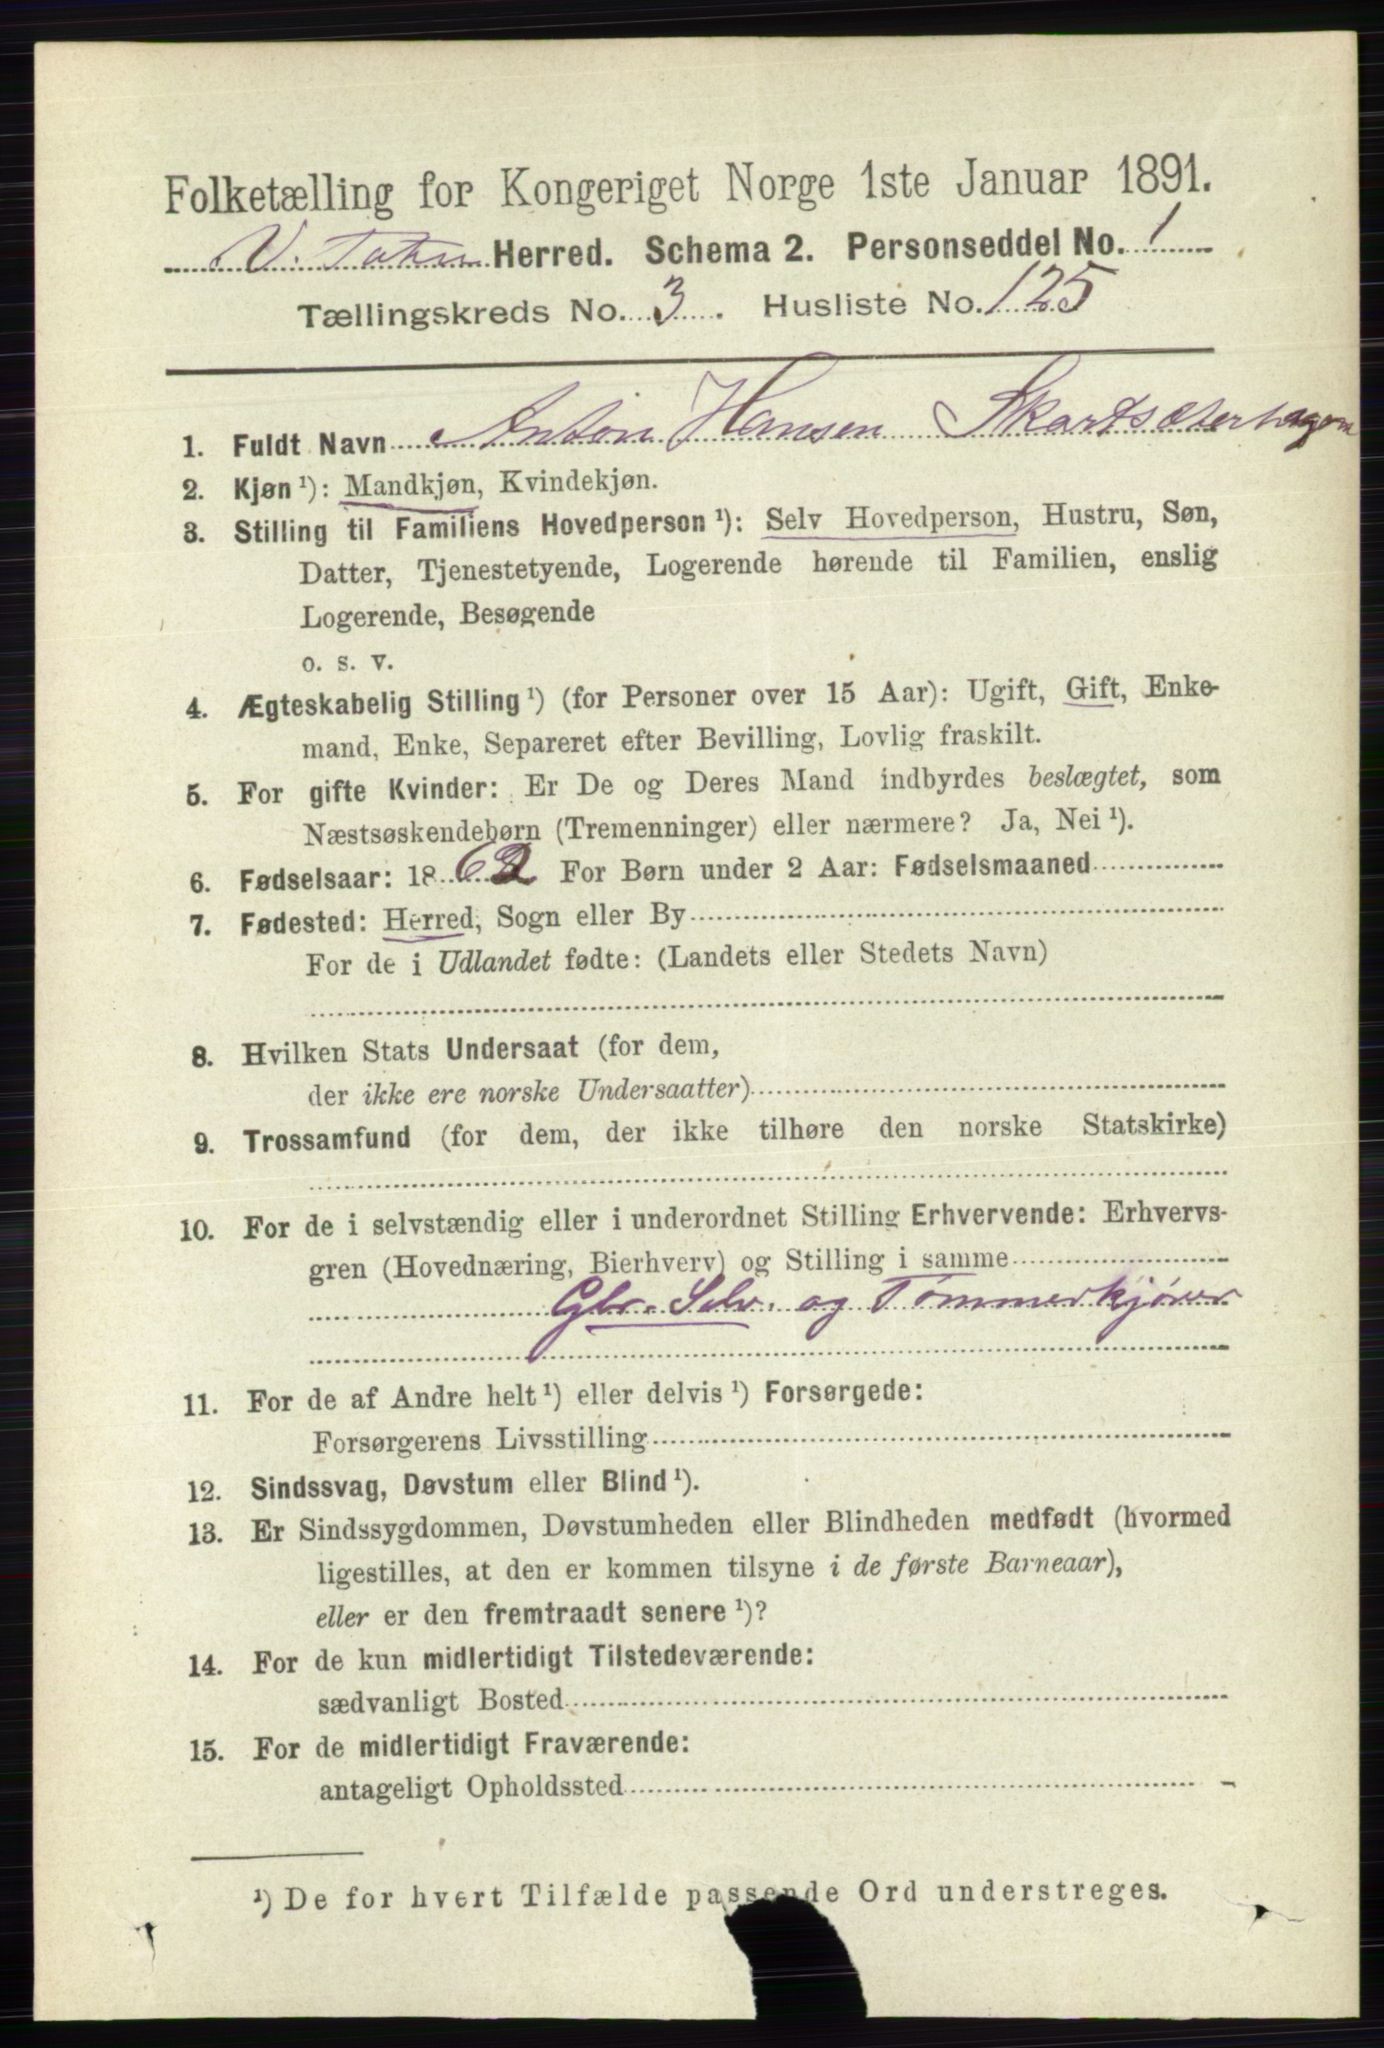 Folketælling for Kongeriget Norge 1ste Januar 1891.
V. Toten Herred. Schema 2. Personseddel No. 1
Tællingskreds No. 3. Husliste No. 125
1. Fuldt Navn Anton Hansen Skartsæterhagen
2. Kjøn ¹): Mandkjøn, Kvindekjøn.
3. Stilling til Familiens Hovedperson ¹): Selv Hovedperson, Hustru, Søn,
Datter, Tjenestetyende, Logerende hørende til Familien, enslig
Logerende, Besøgende
o. s. v.
4. Ægteskabelig Stilling ¹) (for Personer over 15 Aar): Ugift, Gift, Enke-
mand, Enke, Separeret efter Bevilling, Lovlig fraskilt.
5. For gifte Kvinder: Er De og Deres Mand indbyrdes beslægtet, som
Næstsøskendebørn (Tremenninger) eller nærmere? Ja, Nei ¹).
6. Fødselsaar: 1862 For Børn under 2 Aar: Fødselsmaaned
7. Fødested: Herred, Sogn eller By
For de i Udlandet fødte: (Landets eller Stedets Navn)
8. Hvilken Stats Undersaat (for dem,
der ikke ere norske Undersaatter)
9. Trossamfund (for dem, der ikke tilhøre den norske Statskirke)
10. For de i selvstændig eller i underordnet Stilling Erhvervende: Erhvervs-
gren (Hovednæring, Bierhverv) og Stilling i samme
Gbr. Selv. og Tømmerkjører
11. For de af Andre helt ¹) eller delvis ¹) Forsørgede:
Forsørgerens Livsstilling
12. Sindssvag, Døvstum eller Blind ¹).
13. Er Sindssygdommen, Døvstumheden eller Blindheden medfødt (hvormed
ligestilles, at den er kommen tilsyne i de første Barneaar),
eller er den fremtraadt senere ¹)?
14. For de kun midlertidigt Tilstedeværende:
sædvanligt Bosted
15. For de midlertidigt Fraværende:
antageligt Opholdssted
¹) De for hvert Tilfælde passende Ord understreges.